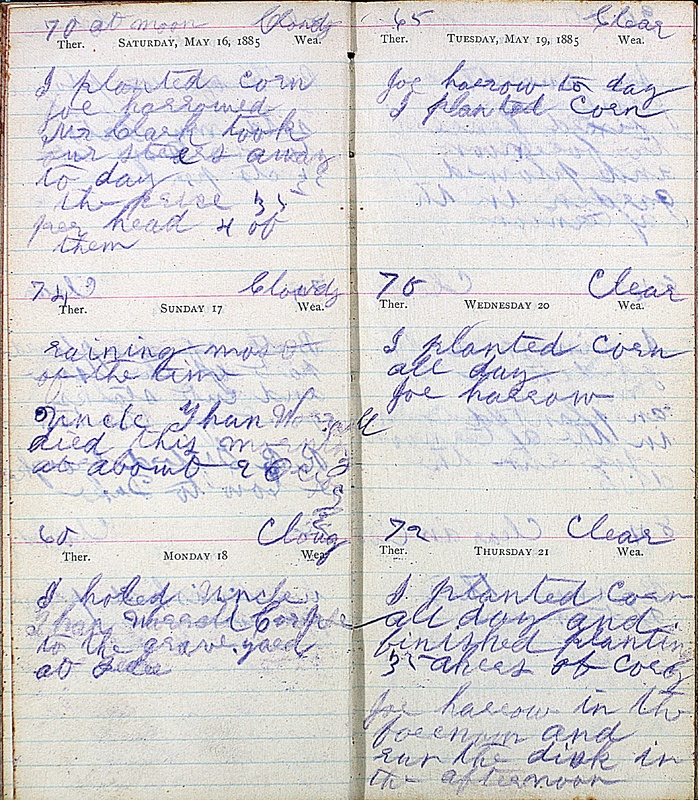 70 at noon Cloudy
Ther. SATURDAY, MAY 16, 1885 Wea.
I planted corn
Joe harrowed
Mr Clark took
our steers away
to day
the price 35
per head 4 of
them
74 Cloudy
Ther. SUNDAY 17 Wea.
raining most
of the time
Uncle Than
died this morning
at about
Cloudy
Ther. MONDAY 18 Wea.
I holed Uncle
Than Corpse
to the grave yard
at
65 Clear
Ther. TUESDAY, MAY 19, 1885 Wea.
Joe harrow to day
I planted Corn
70 Clear
Ther. WEDNESDAY 20 Wea.
I planted Corn
all day
Joe harrow
72 Clear
Ther. THURSDAY 21 Wea.
I planted Corn
all day and
finished planting
35 acres of Corn
Joe harrow in the
foernoon and
run the disk in
the afternoon